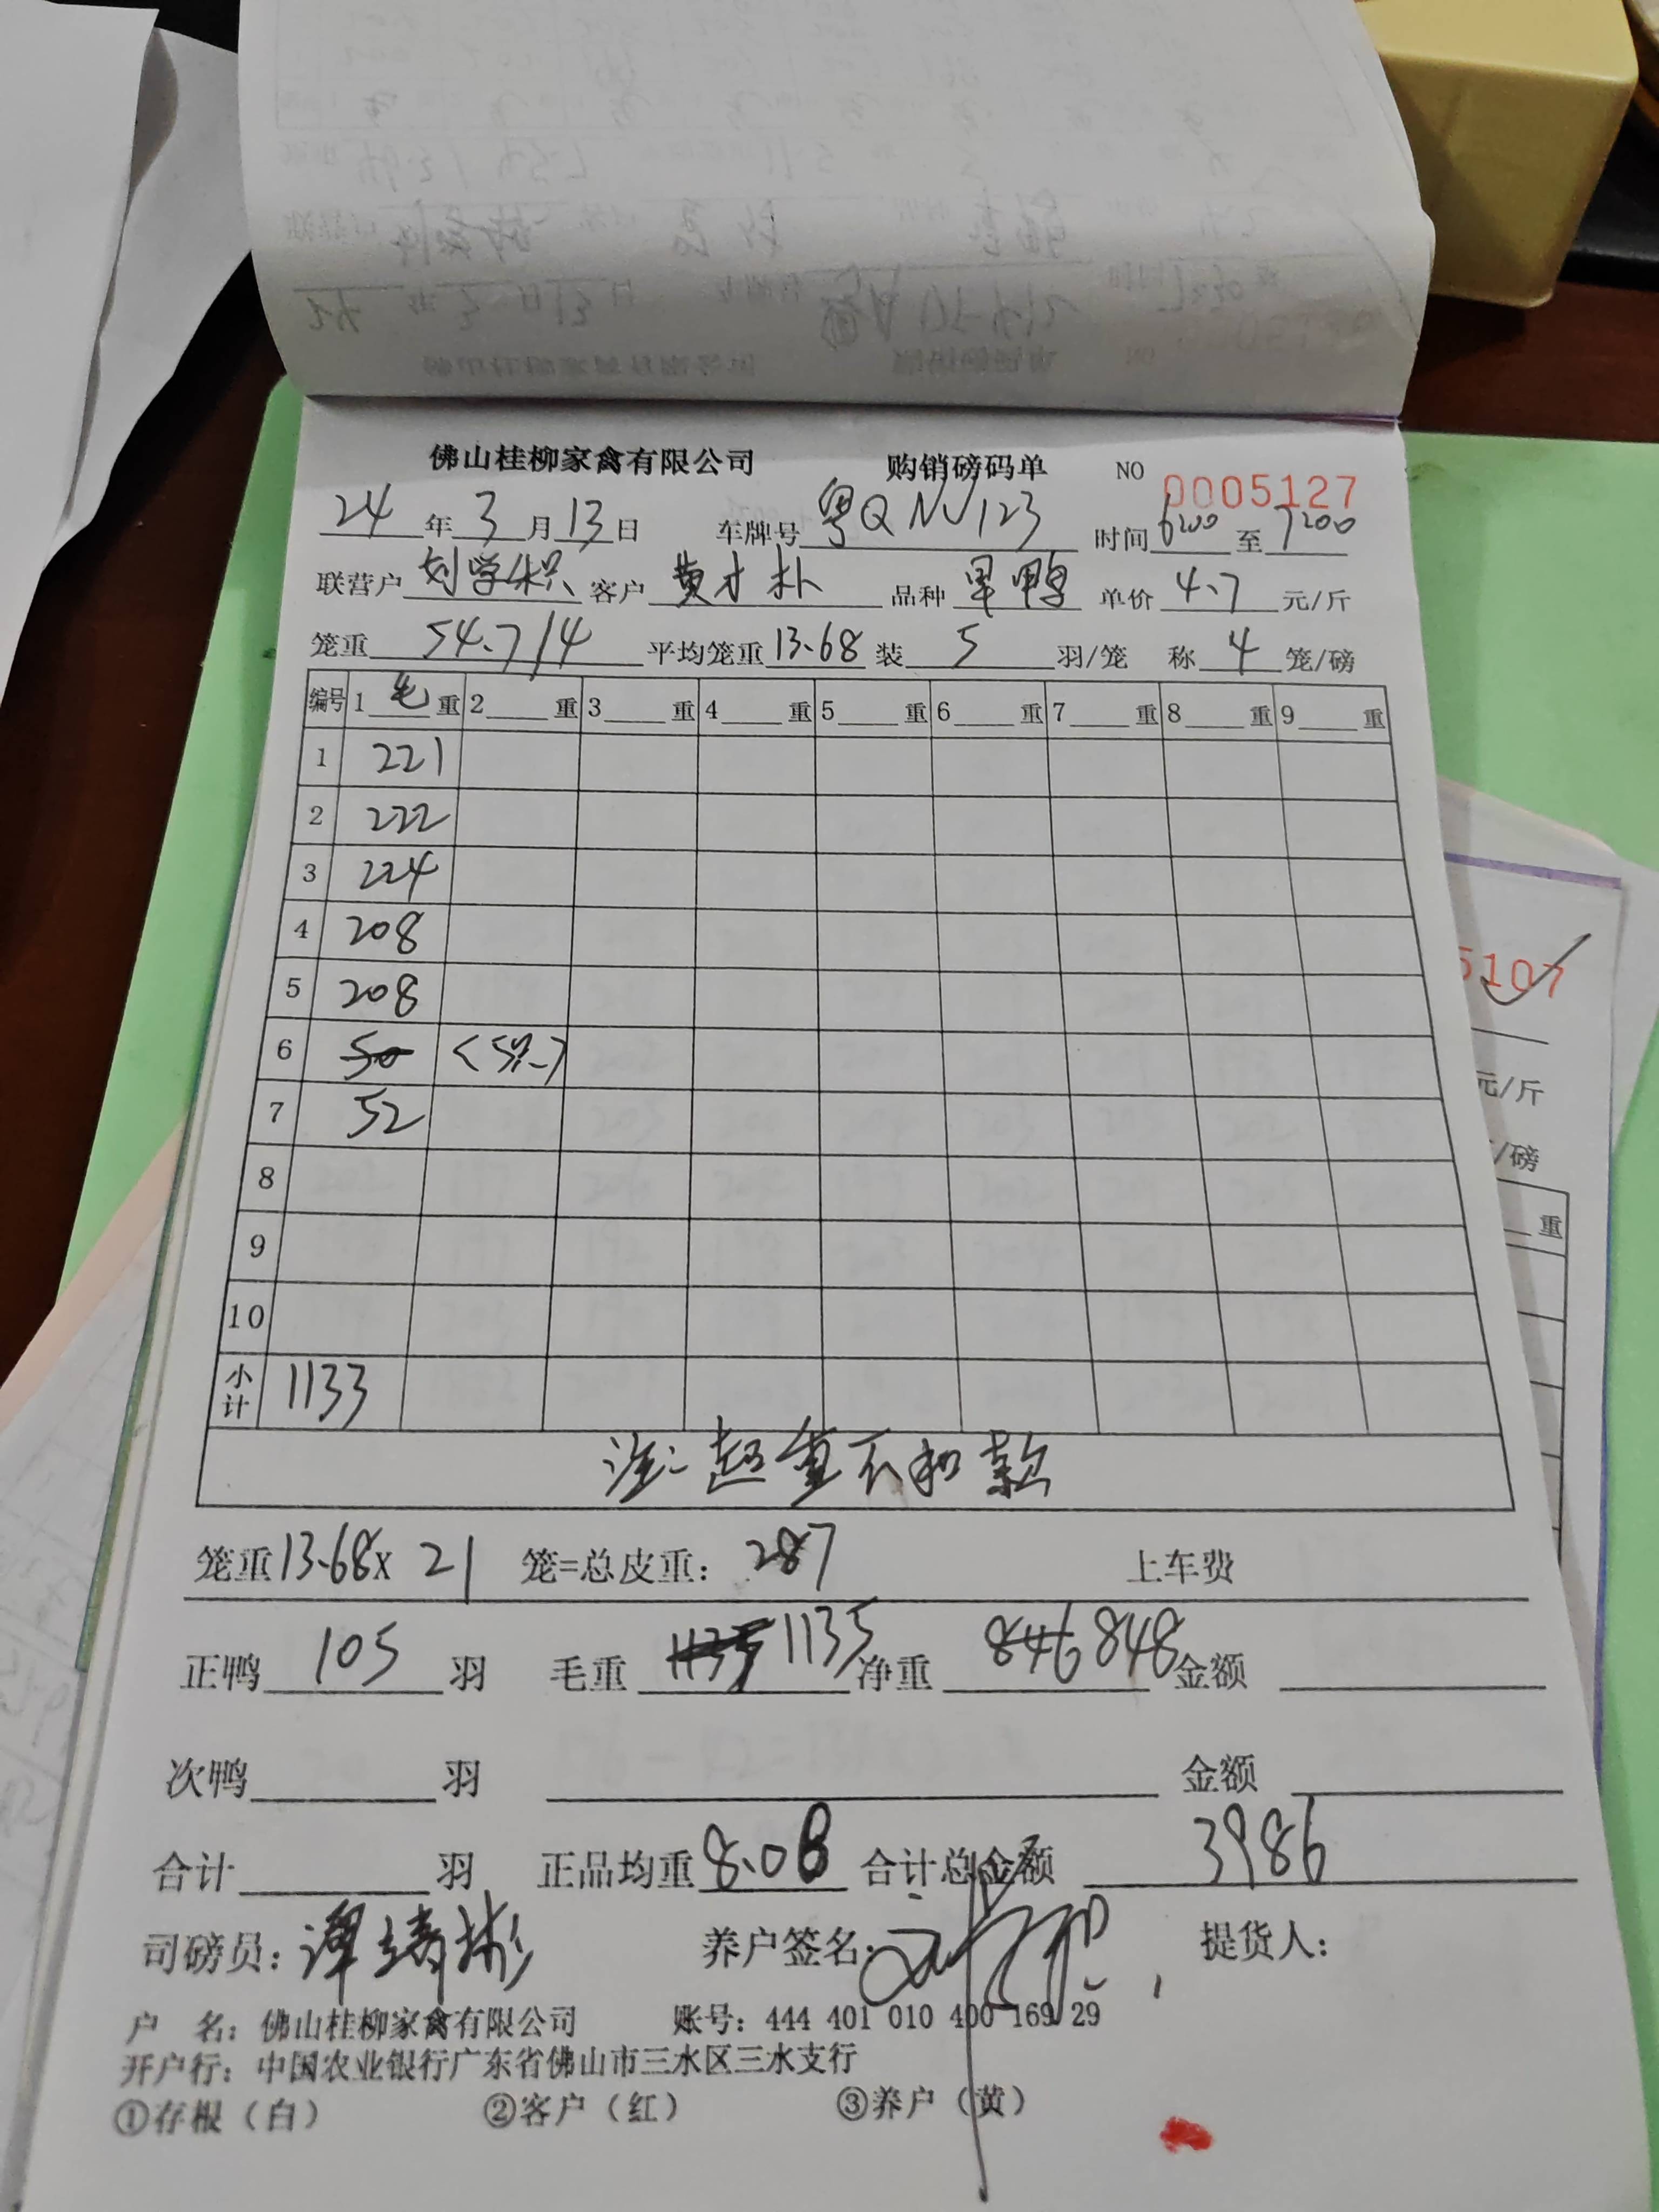 佛山桂柳家禽有限公司 购销磅码单 NO 0005127
24年3月13日 车牌号 粤QNJ123 时间 6:00 至 7:00
联营户 刘学积 客户 黄才朴 品种 旱鸭 单价 4.7 元/斤
笼重 54.7/4 平均笼重 13.68 装 5 羽/笼 称 4 笼/磅
编号 1 毛 重 2 重 3 重 4 重 5 重 6 重 7 重 8 重 9 重
1 221
2 222
3 224
4 208
5 208
6 50
7 52
8
9
10
小计 1133
注:超重不和款
笼重 13.68 X 21 笼=总皮重: 287 上车费
正鸭 105 羽 毛重 1133 1135 净重 846 848 金额
次鸭 羽 金额
合计 羽 正品均重 8.08 合计总金额 3986
司磅员: 谭靖彬 养户签名: 提货人:
户 名: 佛山桂柳家禽有限公司 账号: 444 401 010 400 169 29
开户行: 中国农业银行广东省佛山市三水区三水支行
①存根(白) ②客户(红) ③养户(黄)
5107
元/斤
/磅
重